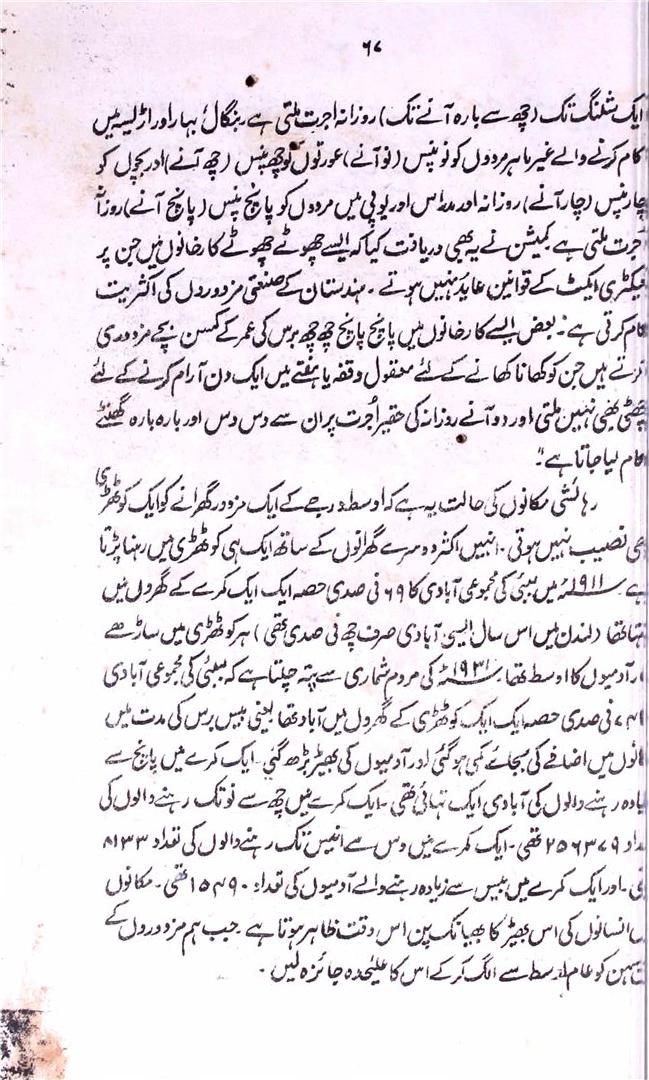 ۶۷
ایک شلنگ تک (چھ سے بارہ آنے تک) روزانہ اجرت ملتی ہے۔ بنگال، بہار اور اڑیسہ میں
کام کرنے والے غیر ماہر مردوں کو نو پنس (نو آنے) عورتوں کو چھ پنس (چھ آنے) اور بچوں کو
چار پنس (چار آنے) روزانہ اور مدراس اور یوپی میں مردوں کو پانچ پنس (پانچ آنے) روزآنہ
اجرت ملتی ہے۔ کمیشن نے یہ بھی دریافت کیا کہ ایسے چھوٹے چھوٹے کارخانوں میں جن پر
فیکٹری ایکٹ کے قوانین عاید نہیں ہوتے۔ ہندستان کے صنعتی مزدوروں کی اکثریت
کام کرتی ہے۔ بعض ایسے کارخانوں میں پانچ پانچ چھ چھ برس کی عمر کے کمسن بچے مزدوری
کرتے ہیں جن کو کھانا کھانے کے لئے معقول وقفہ یا ہفتے میں ایک دن آرام کرنے کے لئے
چھٹی بھی نہیں ملتی اور دو آنے روزانہ کی حقیر اُجرت پر ان سے دس دس اور بارہ بارہ گھنٹے
کام لیا جاتا ہے"۔
رہائشی مکانوں کی حالت یہ ہے کہ اوسط درجے کے ایک مزدور گھرانے کو ایک کوٹھڑی
بھی نصیب نہیں ہوتی۔ انہیں اکثر دوسرے گھرانوں کے ساتھ ایک ہی کوٹھڑی میں رہنا پڑتا
ہے ۱۹۱۱ء میں بمبئی کی مجموعی آبادی کا ۶۹ فی صدی حصہ ایک ایک کمرے کے گھروں میں
رہتا تھا (لندن میں اس سال ایسی آبادی صرف چھ فی صدی تھی) ہر کوٹھڑی میں ساڑھے
آدمیوں کا اوسط تھا۔ ۱۹۳۱ء کی مردم شماری سے پتہ چلتا ہے کہ بمبئی کی مجموعی آبادی
۷۴ فی صدی حصہ ایک ایک کوٹھڑی کے گھروں میں آباد تھا یعنی بیس برس کی مدت میں
مکانوں میں اضافے کی بجائے کمی ہو گئی اور آدمیوں کی بھیڑ بڑھ گئی۔ ایک کمرے میں پانچ سے
زیادہ رہنے والوں کی آبادی ایک تہائی تھی۔ ایک کمرے میں چھ سے نو تک رہنے والوں کی
تعداد ۲۵۶۳۷۹ تھی۔ ایک کمرے میں دس سے انیس تک رہنے والوں کی تعداد ۸۱۳۳
تھی۔ اور ایک کمرے میں بیس سے زیادہ رہنے والے آدمیوں کی تعداد ۱۵۴۹۰ تھی۔ مکانوں
میں انسانوں کی اس بھیڑ کا بھیانک پن اس وقت ظاہر ہوتا ہے۔ جب ہم مزدوروں کے
سہن کو عام اوسط سے الگ کر کے اس کا علیٰحدہ جائزہ لیں۔